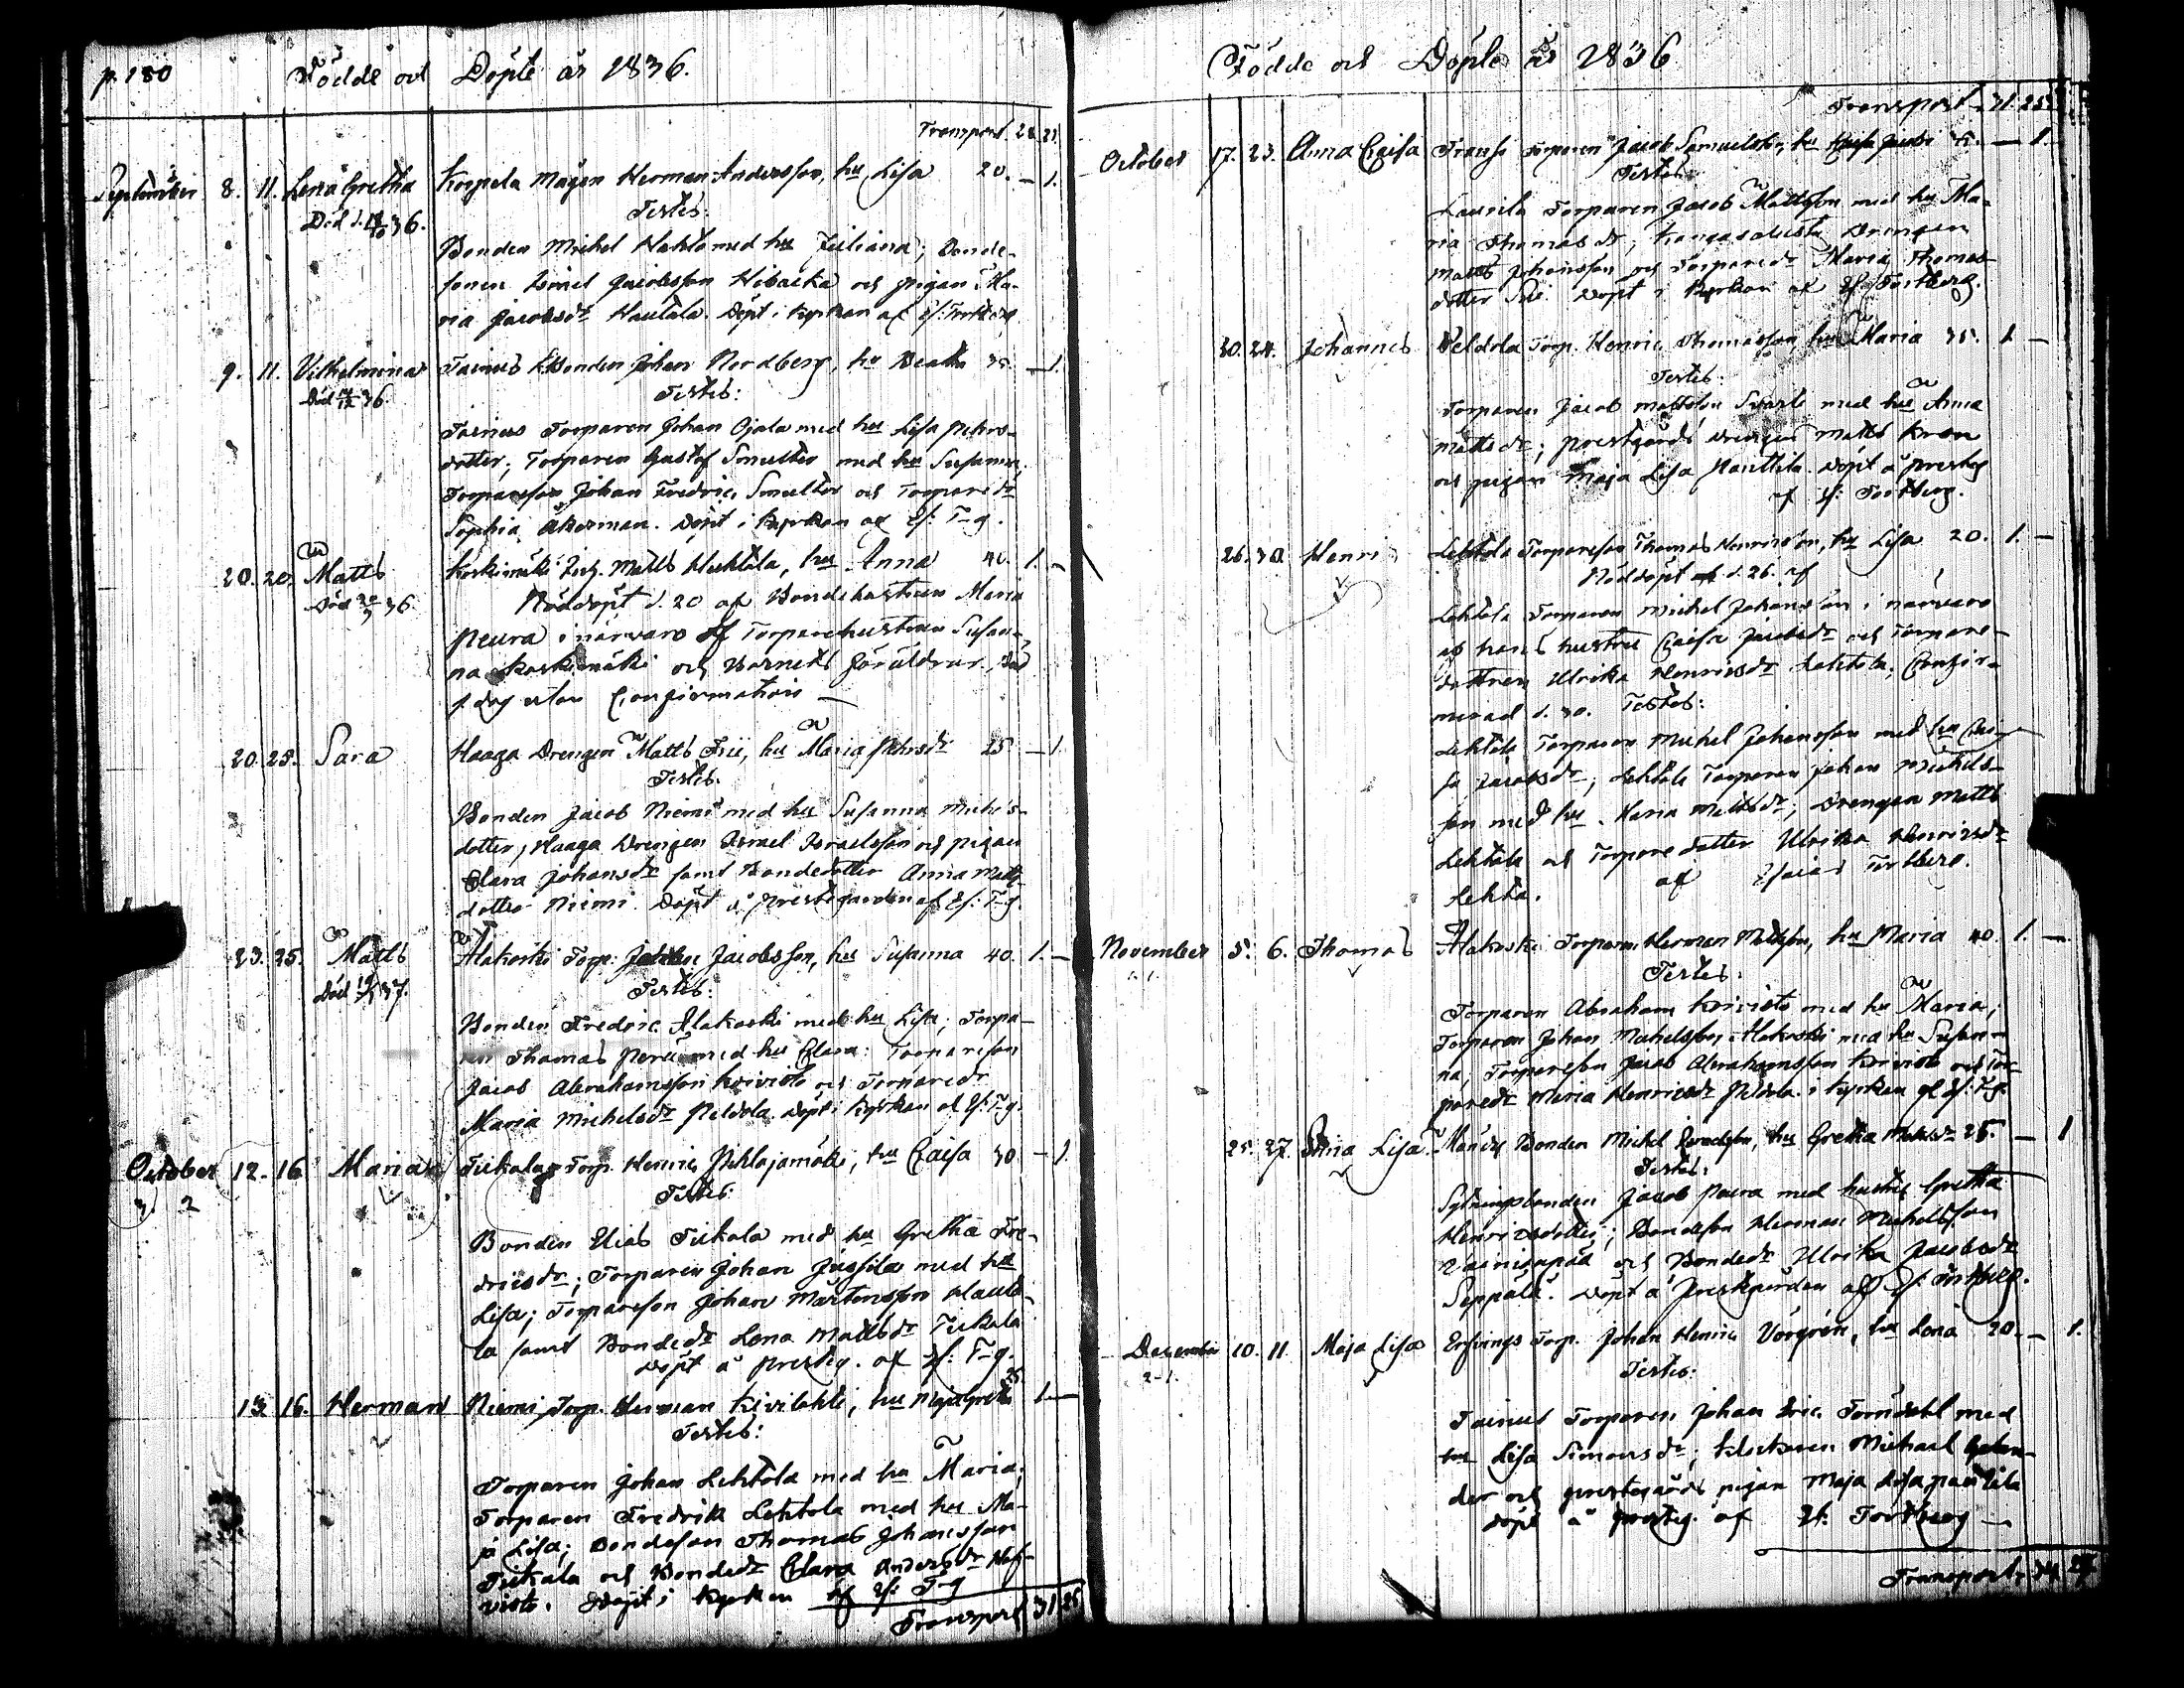 p. 180 Födde och Döpte år 1836.
Transport 28 21
September 8. 11. Lena Gretha Korpela Mågen Herman Andersson, hu Lisa 20. — 1.
Död d. 36. Testes:
Bonden Michel med hu Juliana; Bonde-
sonen Israel Jacobsson och pigan Ma-
ria Jacobsdr Hautala. Döpt i Kyrkan af Es: Fortberg
9. 11. Vilhelmina Bonden Johan Nordberg, hu Beata 35. — 1.
Död 36 Testes:
Torparen Johan Ojala med hu Lisa Pehrs-
dotter; Torparen Gustaf Smulter med hu Susanna;
Torpareson Johan Fredric Smulter och Torparedr
Sophia Åkerman. Döpt i Kyrkan af Es: F—g.
20. 20. Matts Koskimäki Matts Huhtala, hu Anna 40. 1. —
Död 20/9 36. Nöddöpt d. 20 af Bondehustrun Maria
Peura i närvaro af Torparehustrun Susan-
na Koskimäki och Barnets föräldrar. Död
s. dag utan Confirmation —
20. 25. Sara Haaga Drengen Matts Frii, hu Maria Pehrsdr 25 — 1
Testes.
Bonden Jacob Niemi med hu Susanna Michels-
dotter, Haaga Drengen Israel Israelsson och pigan
Clara Johansdr samt Bondedotter Anna Matts-
dotter Niemi. Döpt å Prestegården af Es: F—g.
23. 25. Matts Alakoski Torp. Jacobsson, hu Susanna 40. 1. —
Död 37. Testes:
Bonden Fredric Alakoski med hu Lisa; Torpa-
ren Thomas med hu Clara; Torpareson
Jacob Abrahamsson Koivisto och Torparedr
Maria Michelsdr Peldola. Döpt i Kyrkan af Es: F—g.
October 12. 16. Maria Tiikala Torp. Henric Pihlajamäki, hu Caisa 30 — 1
3 2 Testes:
Bonden Elias Tiikala med hu Gretha Fre-
dricsdr; Torparen Johan Jussila med hu
Lisa; Torpareson Johan Mårtensson Hauta-
la samt Bondedr Lena Mattsdr Tiikala
Döpt å Presteg. af Es: F—g.
25.
13. 16. Herman Niemi Torp. Herman Kivilahti, hu Maja Gretha 1. —
Testes:
Torparen Johan Lehtola med hu Maria;
Torparen Fredrik Lehtola med hu Ma-
ja Lisa; Bondeson Thomas Johansson
Tiikala och Bondedr Clara Andersdr
Döpt i Kyrkan af Es: F—g
Transport 31 25
Födde och Döpte år 1836
Transport 31 25
October 17. 23. Anna Caisa Torparen Jacob Samuelsson, hu Caisa — 1.
Testes:
Laurila Torparen Jacob Mattsson med hu Ma-
ria Thomasdr; Drengen
Matts Johansson och Torparedr Maria Thomas-
dotter Döpt i Kyrkan af Es: Fortberg.
20. 24. Johannes Peldola Torp. Henric Thomasson hu Maria 35. 1 —
Testes:
Torparen Jacob Mattsson med hu Anna
Mattsdr; Prestgårds Drengen Matts
och pigan Maja Lisa Panttila. Döpt å Presteg
af Es: Fortberg.
26. 30. Henric Lehtola Torpareson Thomas Henricsson, hu Lisa 20. 1. —
Nöddöpt d. 26. af
Lehtola Torparen Michel Johansson i närvaro
af hans hustru Caisa Jacobsdr och Torpare-
dottren Ulrika Henricsdr Lehtola; Confir-
merad d. 30. Testes:
Lehtola Torparen Michel Johansson med hu Cai-
sa Jacobsdr; Lehtola Torparen Johan Michels-
son med hu Maria Mattsdr; Drengen Matts
Lehtola och Torpare dotter Ulrika Henricsdr
Lehto. af Esaias Fortberg.
November 5. 6. Thomas Alakoski Torparen Herman Mattsson, hu Maria 40 1. —
Testes:
Torparen Abraham Koivisto med hu Maria;
Torparen Johan Michelsson Alakoski med hu Susan-
na; Torpareson Jacob Abrahamsson Koivisto och Tor-
paredr Maria Henricsdr Peldola i Kyrkan af Es: F—g.
25. 27. Anna Lisa Bonden Michel hu Gretha 25. — 1
Testes:
Sytningsbonden Jacob Peura med hustru Gretha
Henricsdotter; Bondeson Herman Michelsson
Vainionpää och Bondedr Ulrika Jacobsdr
Seppälä. Döpt å Prestgården af Es: Fortberg.
December 10. 11 Maja Lisa Torp. Johan Henric hu Lena 20. — 1.
2-1. Testes:
Torparen Johan Eric med
hu Lisa Simonsdr; Klockaren Michael
och prestgårds pigan Maja Lisa Panttila
Döpt å Presteg af Es: Fortberg —
Transport, 34 27